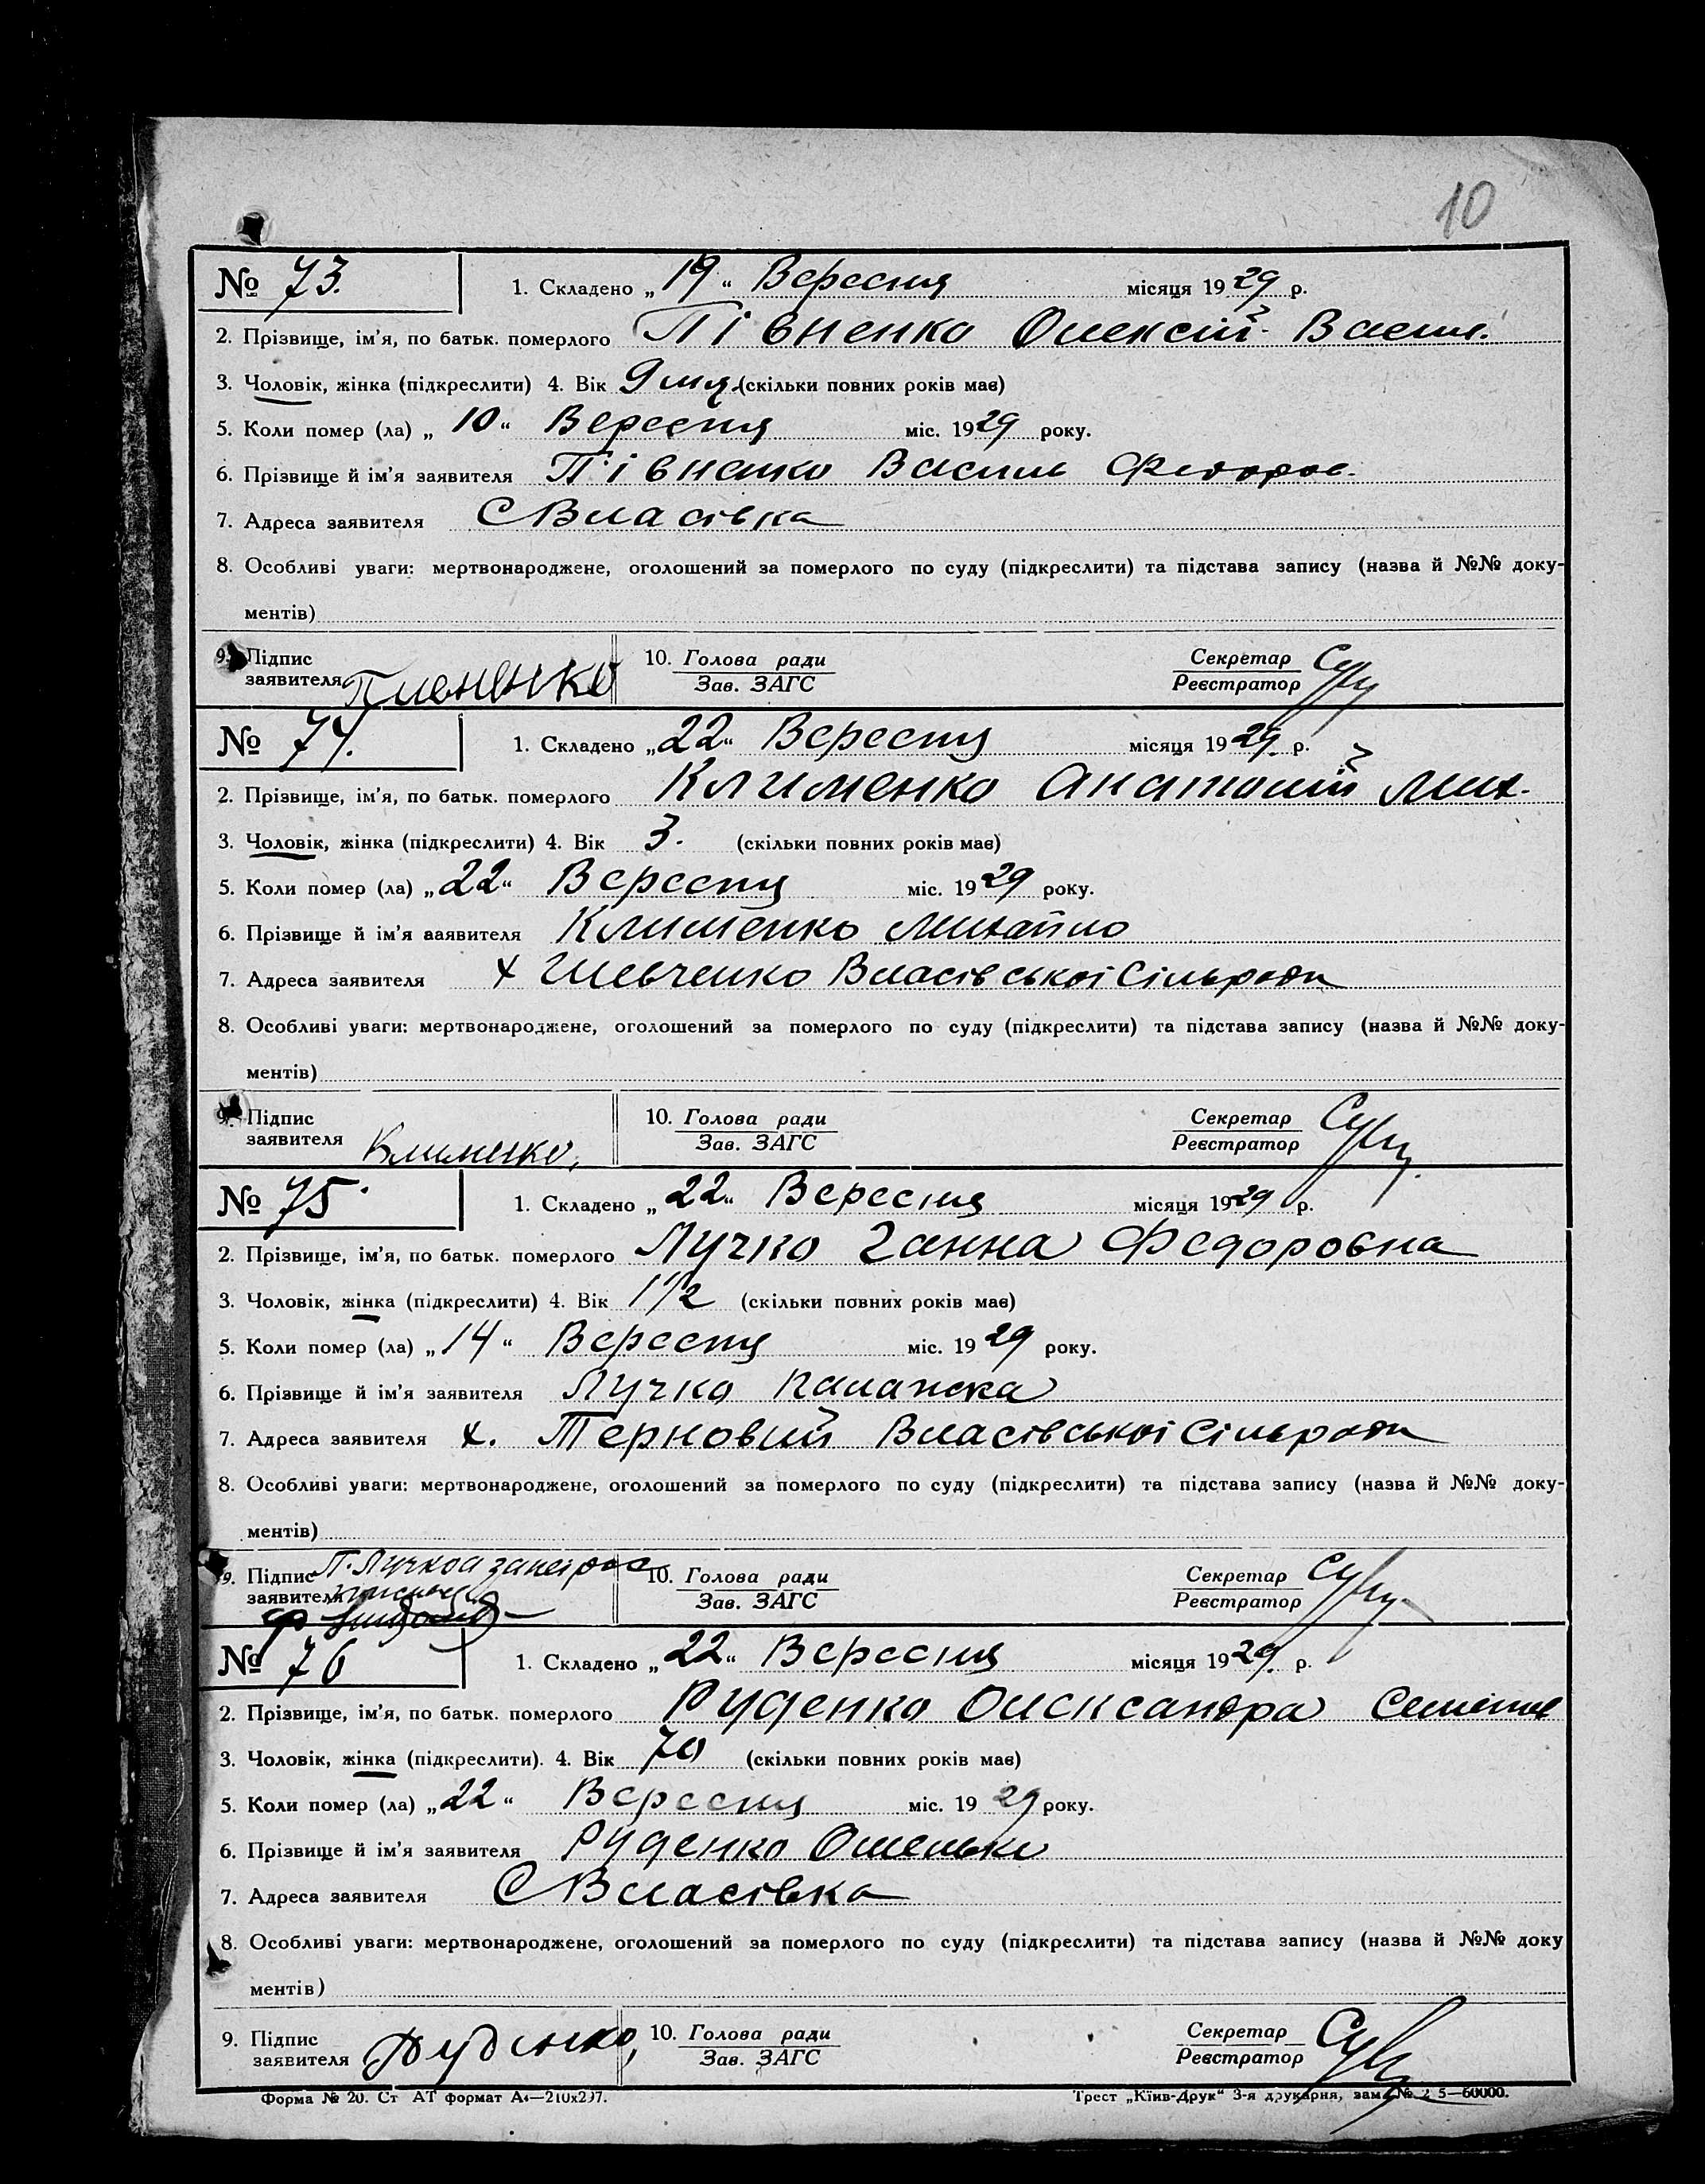 10
№ 73. 1. Складено „19“ Вересня місяця 1929 р.
2. Прізвище, ім'я, по батьк. померлого Півненко Олексій Васил.
3. Чоловік, жінка (підкреслити) 4. Вік 9 міс. (скільки повних років має)
5. Коли помер (ла) „10“ Вересня міс. 1929 року.
6. Прізвище й ім'я заявителя Півненко Василь Федоров.
7. Адреса заявителя С Власівка
8. Особливі уваги: мертвонароджене, оголошений за померлого по суду (підкреслити) та підстава запису (назва й №№ доку-
ментів)
9. Підпис заявителя Пивненко 10. Голова ради Зав. ЗАГС Секретар Реєстратор
№ 74. 1. Складено „22“ Вересня місяця 1929. р.
2. Прізвище, ім'я, по батьк. померлого Клименко Анатолій Мих.
3. Чоловік, жінка (підкреслити) 4. Вік 3. (скільки повних років має)
5. Коли помер (ла) „22“ Вересня міс. 1929 року.
6. Прізвище й ім'я заявителя Клименко Михайло
7. Адреса заявителя х Шевченко Власівської Сільради
8. Особливі уваги: мертвонароджене, оголошений за померлого по суду (підкреслити) та підстава запису (назва й №№ доку-
ментів)
9. Підпис заявителя Клименко, 10. Голова ради Зав. ЗАГС Секретар Реєстратор
№ 75. 1. Складено „22“ Вересня місяця 1929 р.
2. Прізвище, ім'я, по батьк. померлого Лучко Ганна Федоровна
3. Чоловік, жінка (підкреслити) 4. Вік 1 1/2 (скільки повних років має)
5. Коли помер (ла) „14“ Вересня міс. 1929 року.
6. Прізвище й ім'я заявителя Лучко Палажка
7. Адреса заявителя х. Терновий Власівської Сільради
8. Особливі уваги: мертвонароджене, оголошений за померлого по суду (підкреслити) та підстава запису (назва й №№ доку-
ментів)
9. Підпис заявителя П. Лучко а 10. Голова ради Зав. ЗАГС Секретар Реєстратор
№ 76 1. Складено „22“ Вересня місяця 1929. р.
2. Прізвище, ім'я, по батьк. померлого Руденко Олександра
3. Чоловік, жінка (підкреслити). 4. Вік 70 (скільки повних років має)
5. Коли помер (ла) „22“ Вересня міс. 1929 року.
6. Прізвище й ім'я заявителя Руденко Омелько
7. Адреса заявителя С Власівка
8. Особливі уваги: мертвонароджене, оголошений за померлого по суду (підкреслити) та підстава запису (назва й №№ доку
ментів)
9. Підпис заявителя Руденко, 10. Голова ради Зав. ЗАГС Секретар Реєстратор
Форма № 20. Ст АТ формат А4—210х297. Трест „Київ-Друк“ 3-я друкарня, зам. №